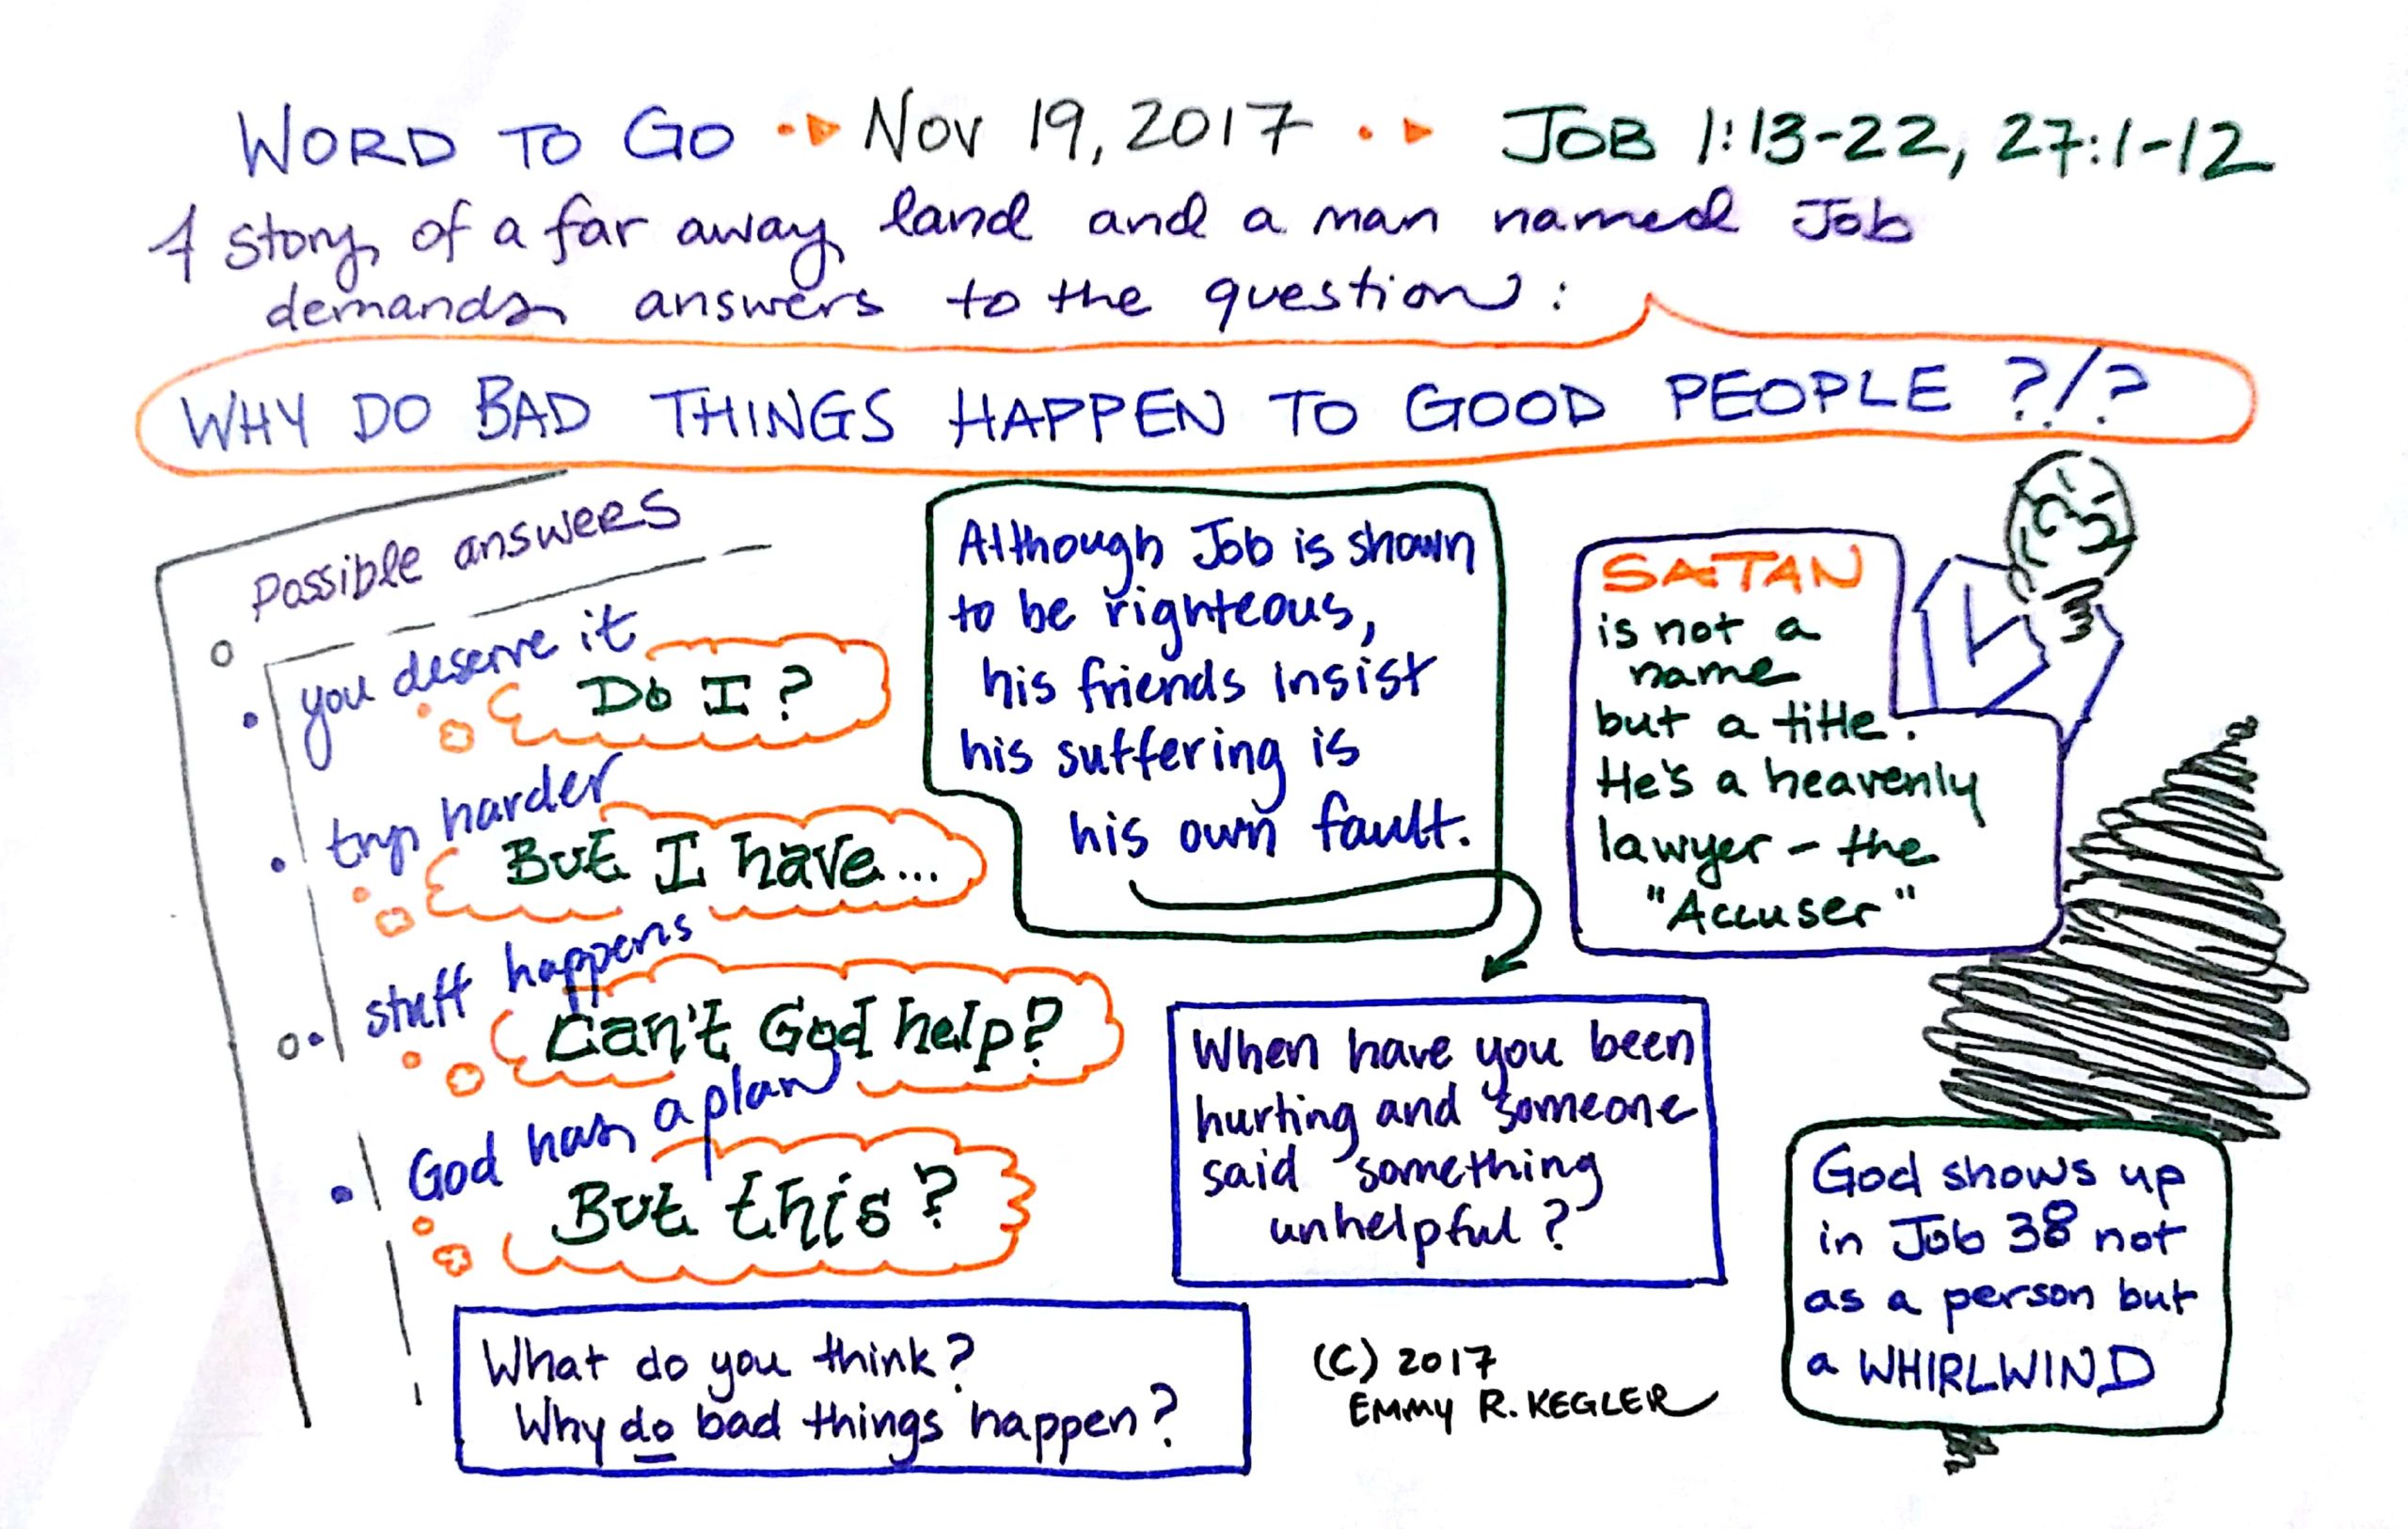 WORD TO GO Nov 19, 2017 JOB 1:13-22, 27:1-12
A story of a far away land and a man named Job
demands answers to the question:
WHY DO BAD THINGS HAPPEN TO GOOD PEOPLE ?/?
Possible answers
you deserve it
Do I?
try harder
But I have...
stuff happens
Can't God help?
God has a plan
But this?
What do you think?
Why do bad things happen?
Although Job is shown
to be righteous,
his friends insist
his suffering is
his own fault.
When have you been
hurting and someone
said something
unhelpful?
SATAN
is not a
name
but a title.
He's a heavenly
lawyer - the
"Accuser"
God shows up
in Job 38 not
as a person but
a WHIRLWIND
(C) 2017
EMMY R. KEGLER